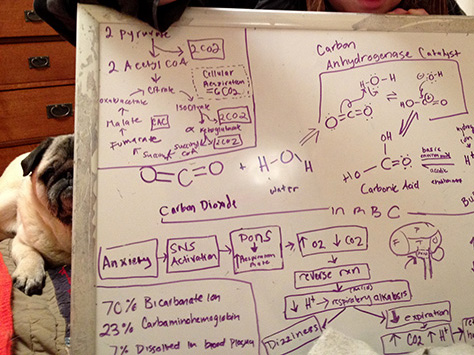 2 Pyruvate
2CO2
2 Acetyl CoA
Citrate
Cellular
Respiration
=6CO2
Isocitrate
2CO2
oxaloacetate
α Ketoglutarate
Malate
TAC
succinyl
CoA
2CO2
Fumarate
Succinate
Carbon
Anhydrogenase Catalyst
H O H
O=C=O
HO
OH
HO C=O
Carbonic Acid
basic
environment
acidic
environment
O=C=O + H O H
water
Carbon Dioxide
in RBC
Bu
Anxiety
SNS
Activation
Pons
↑ Respiration
Rate
↑ O2 ↓ CO2
reverse rxn
↓ H+ → respiratory alkalosis
Dizziness
↓ expiration
↑ CO2 ↑ H+
70% Bicarbonate Ion
23% Carbaminohemoglobin
7% Dissolved in blood plasma